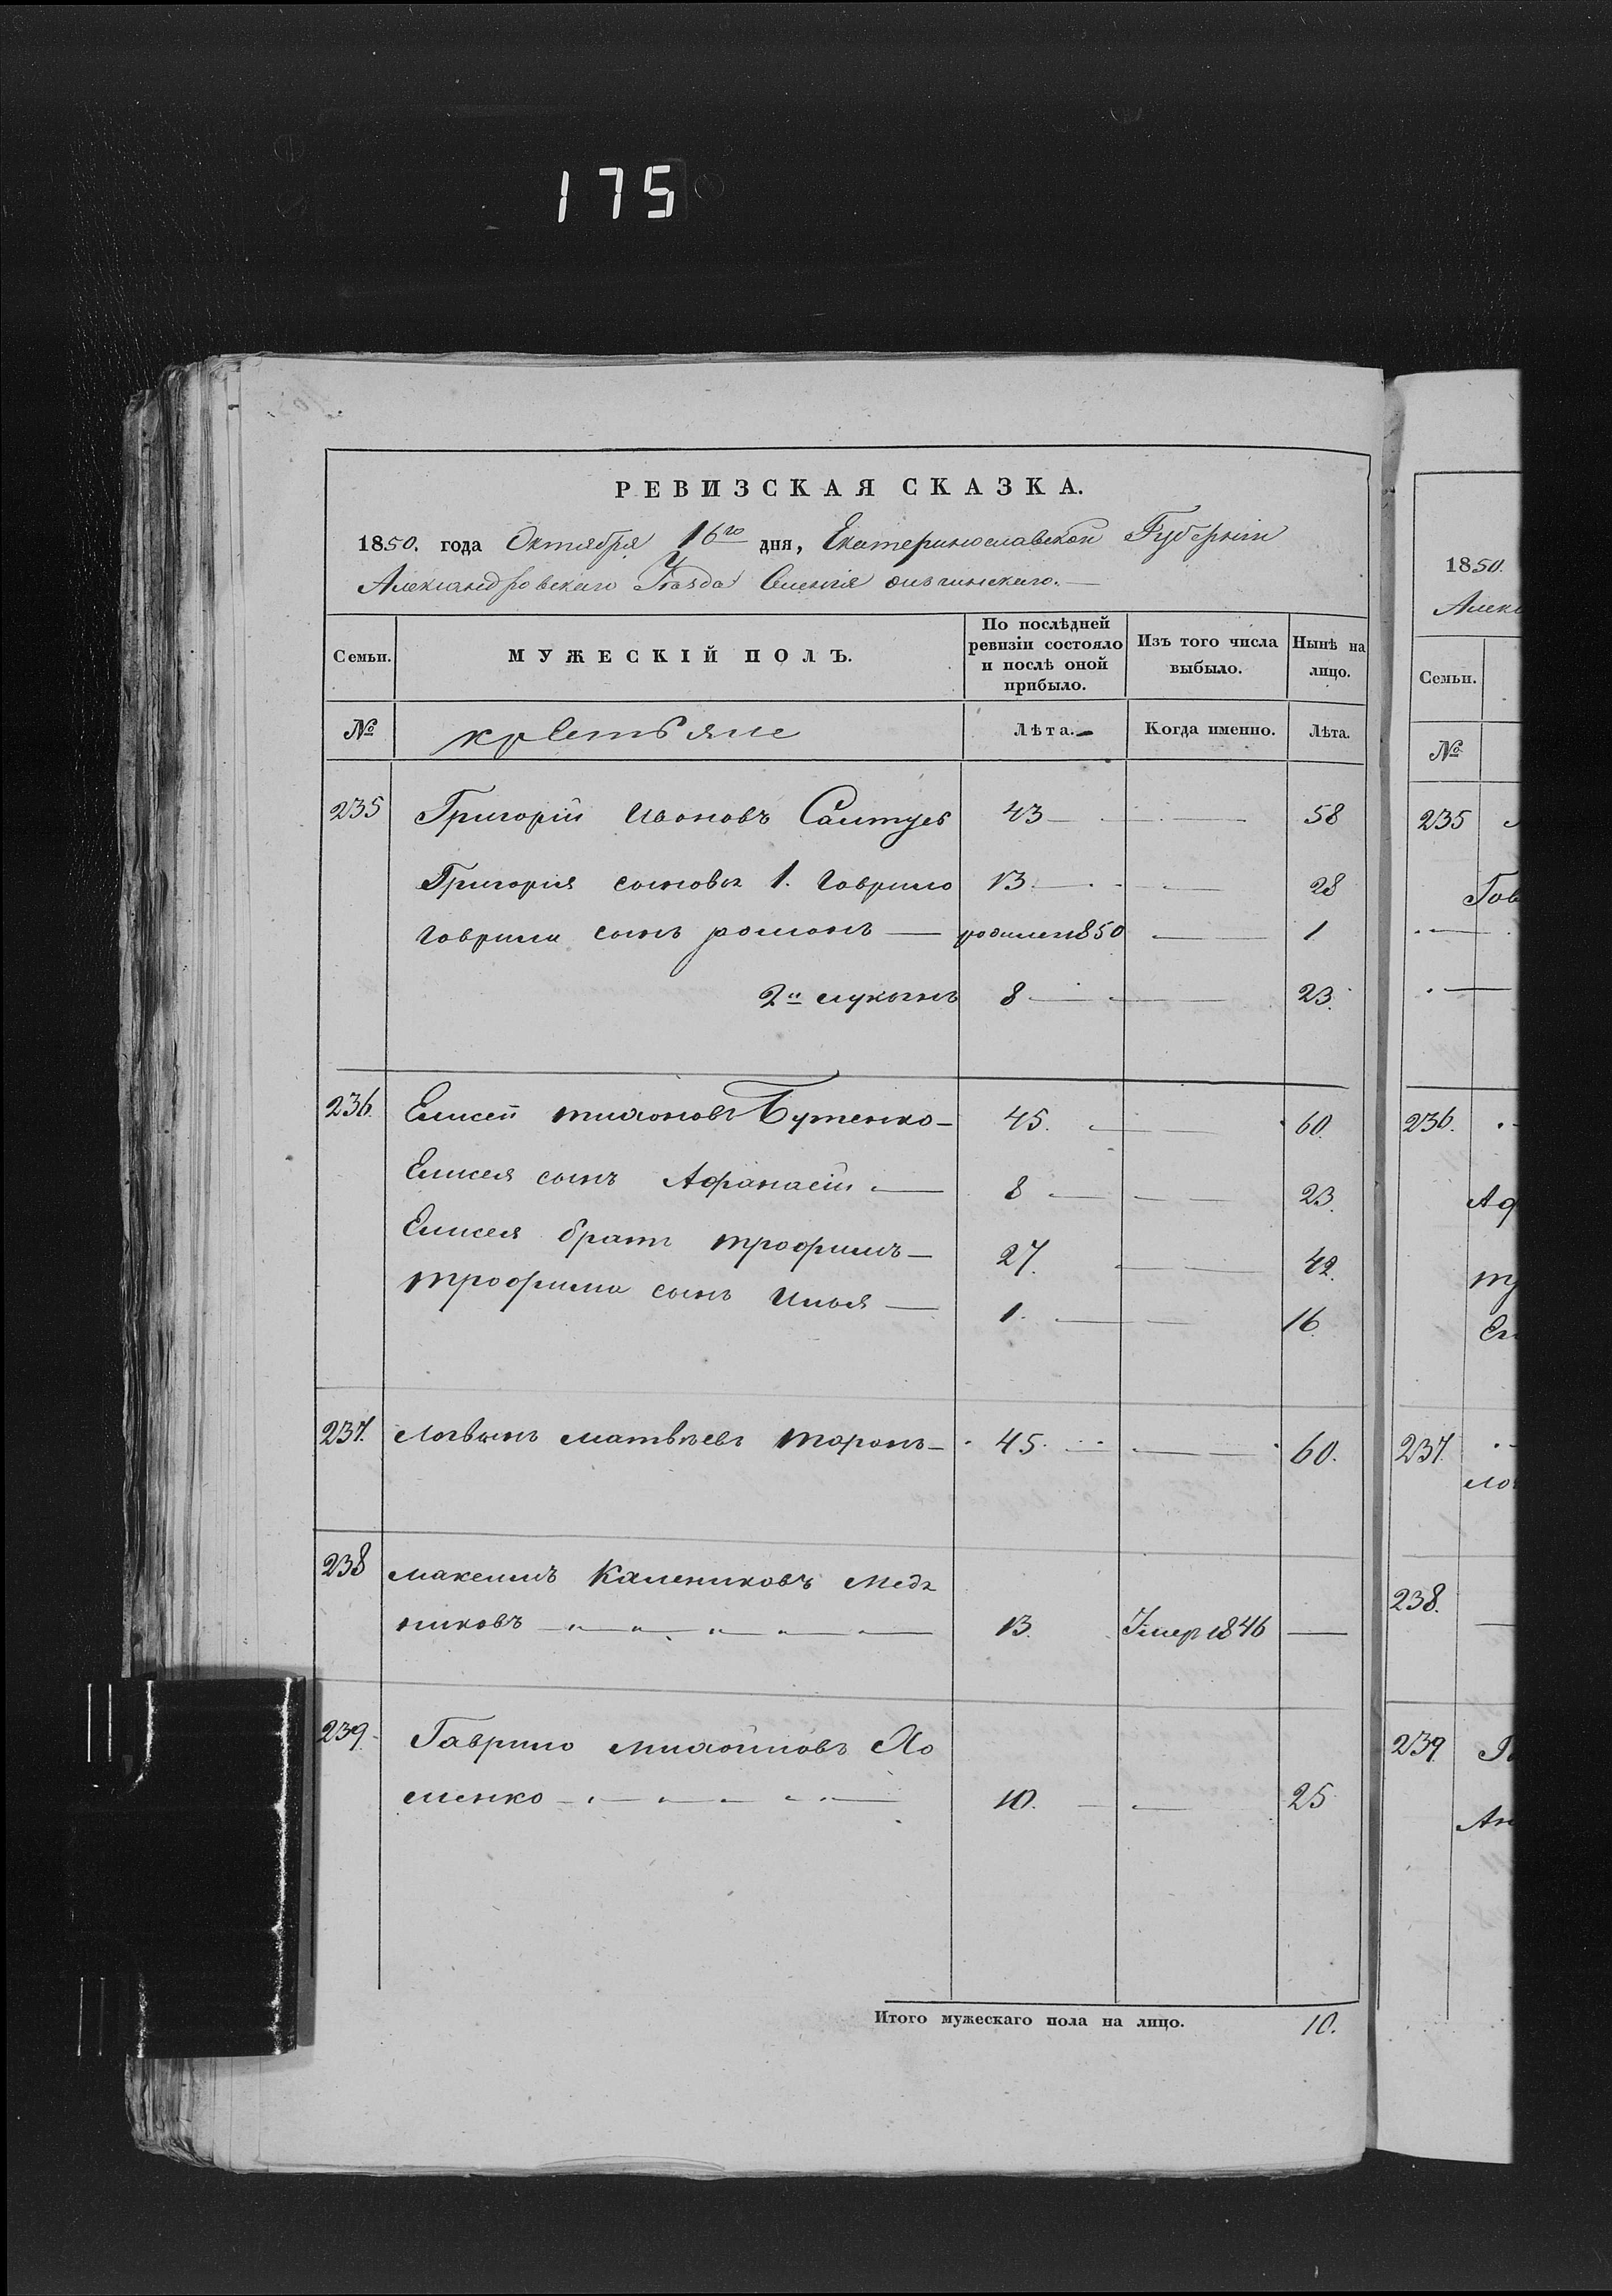 175
РЕВИЗСКАЯ СКАЗКА.
1850. года Октября 16го дня, Екатеринославской Губерніи
Александровскаго Уезда Селенія
Семьи.
МУЖЕСКІЙ ПОЛЪ.
По послѣдней ревизіи состояло и послѣ оной прибыло.
Изъ того числа выбыло.
Нынѣ на лицо.
№
крестьяне
Лѣта.
Когда именно.
Лѣта.
235 Григорій Ивановъ 43 58
Григорія сыновья 1. Гаврило 13 28
Гаврила сынъ романъ родилс 1850 1
2й лукьянъ 8 23.
236. Елисей тихоновъ Бутенко 45. 60.
Елисея сынъ Афанасій 8 23.
Елисея братъ трофимъ 27. 42.
трофима сынъ Илья 1. 16.
237. логвинъ матвѣевъ таранъ 45. 60.
238 максимъ Калениковъ мед
никовъ 13. Умер 1846 —
239. Гаврило михайловъ Хо
менко 10. 25
Итого мужескаго пола на лицо. 10.
1850.
Алекс
Семьи.
№
235
Гав
236.
Аф
тр
237.
ло
238.
239